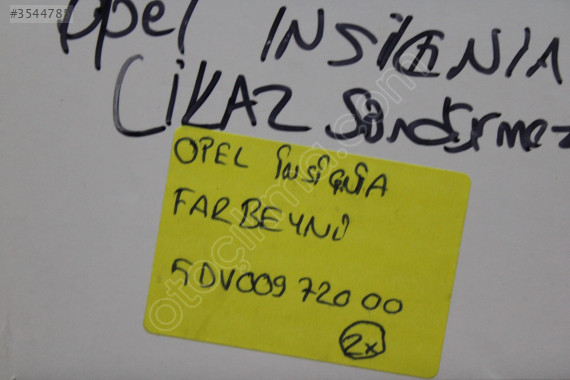 #354478
Opel INSİGNIA
ÇIKAZ Söndürmez
OPEL İNSİGNİA
FAR BEYNİ
5DV009 720 00
2x
otoçikma.com